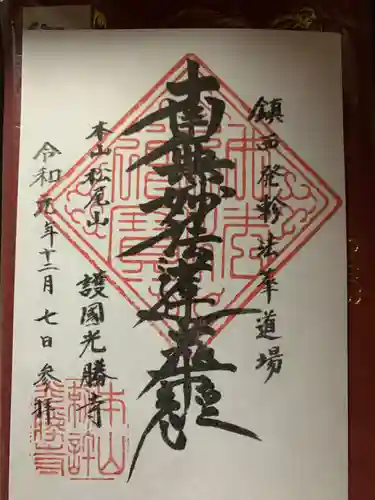 鎮西発軫法華道場
南無妙法蓮華経
本山松尾山
護國光勝寺
令和元年十二月七日参拝